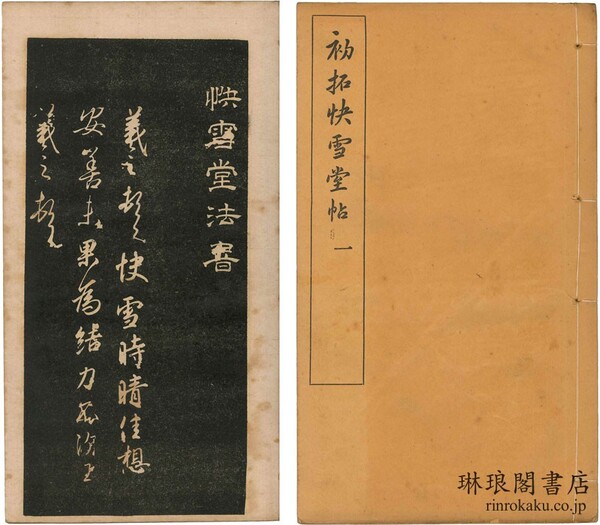 初拓快雪堂帖 一
快雪堂法書
羲之頓首快雪時晴佳想
安善未果為結力不次王
羲之頓首
琳琅閣書店
rinrokaku.co.jp